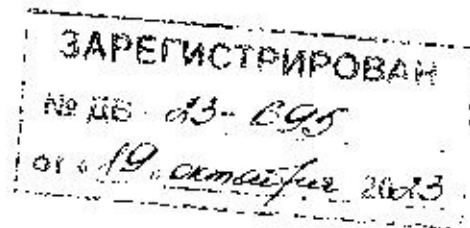 ЗАРЕГИСТРИРОВАН
№ ДБ 23-695
от «19» октября 2023